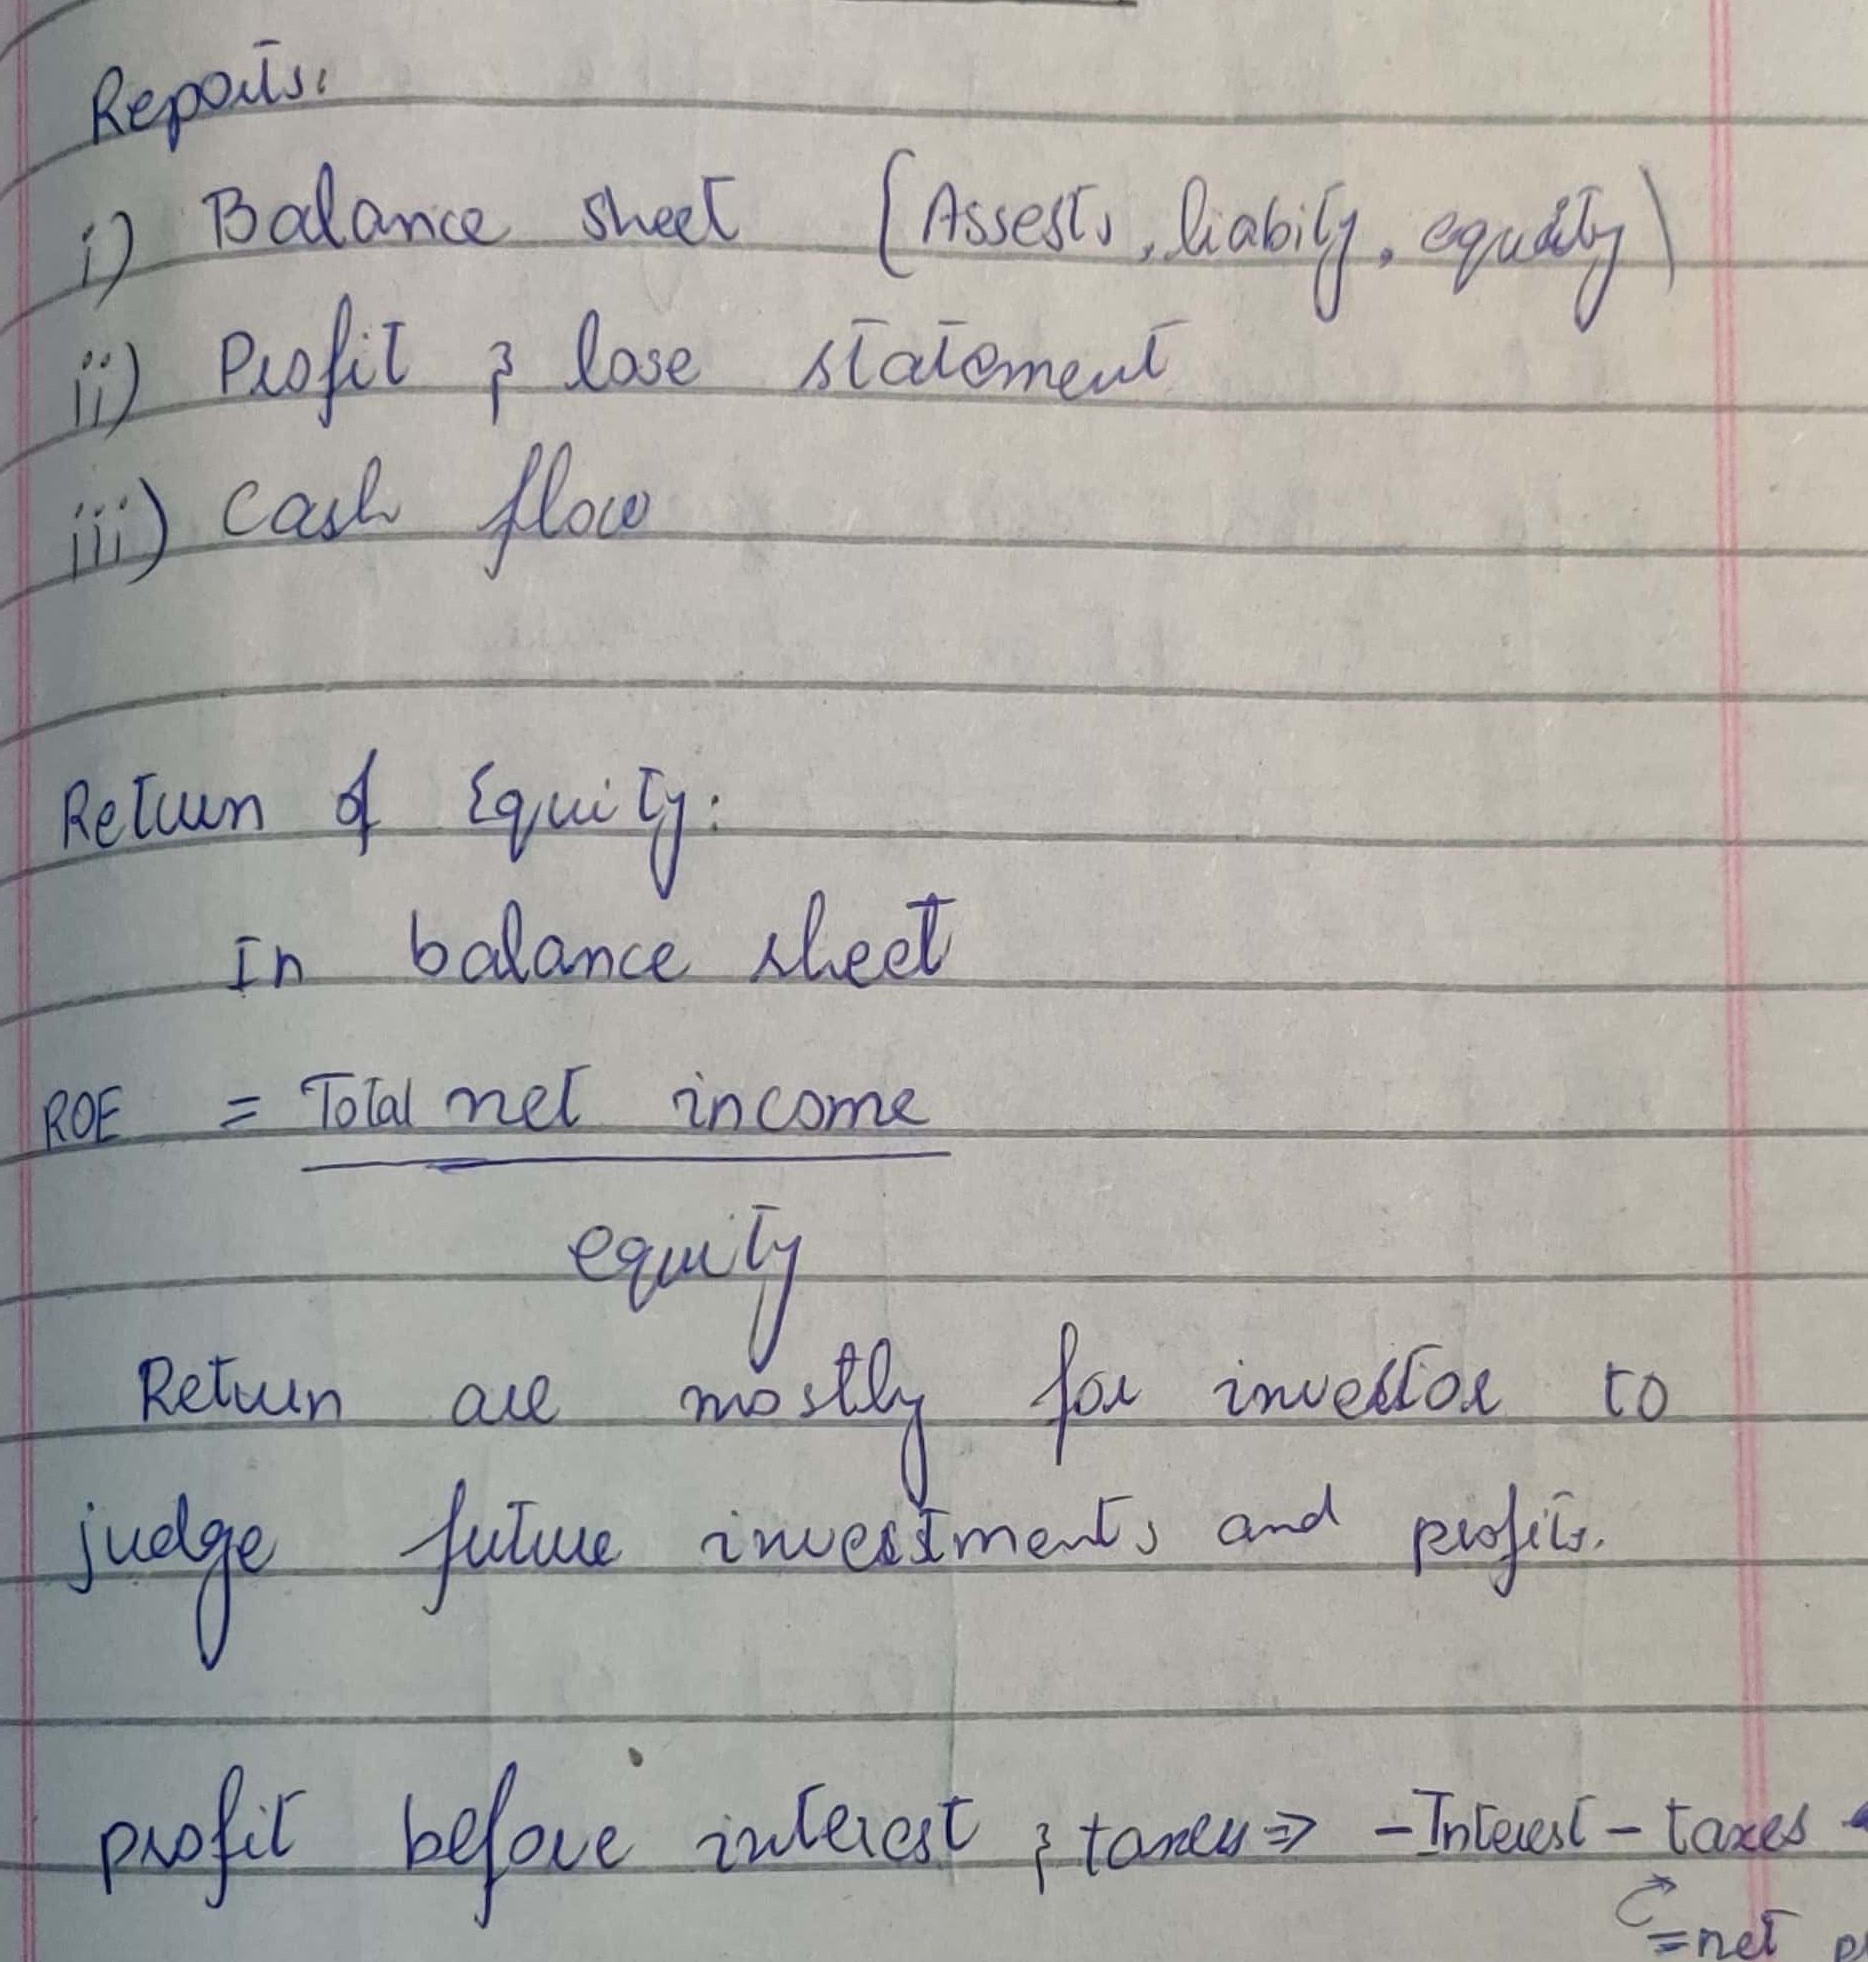 Reports:
i) Balance sheet (Assests, liabity, equity)
ii) Profit & lose statement
iii) Cash flow
Return of Equity:
In balance sheet
ROE = Total net income
equity
Return are mostly for investor to
judge future investments and profits.
profit before interest & taxes ⇒ - Interest - taxes
= net